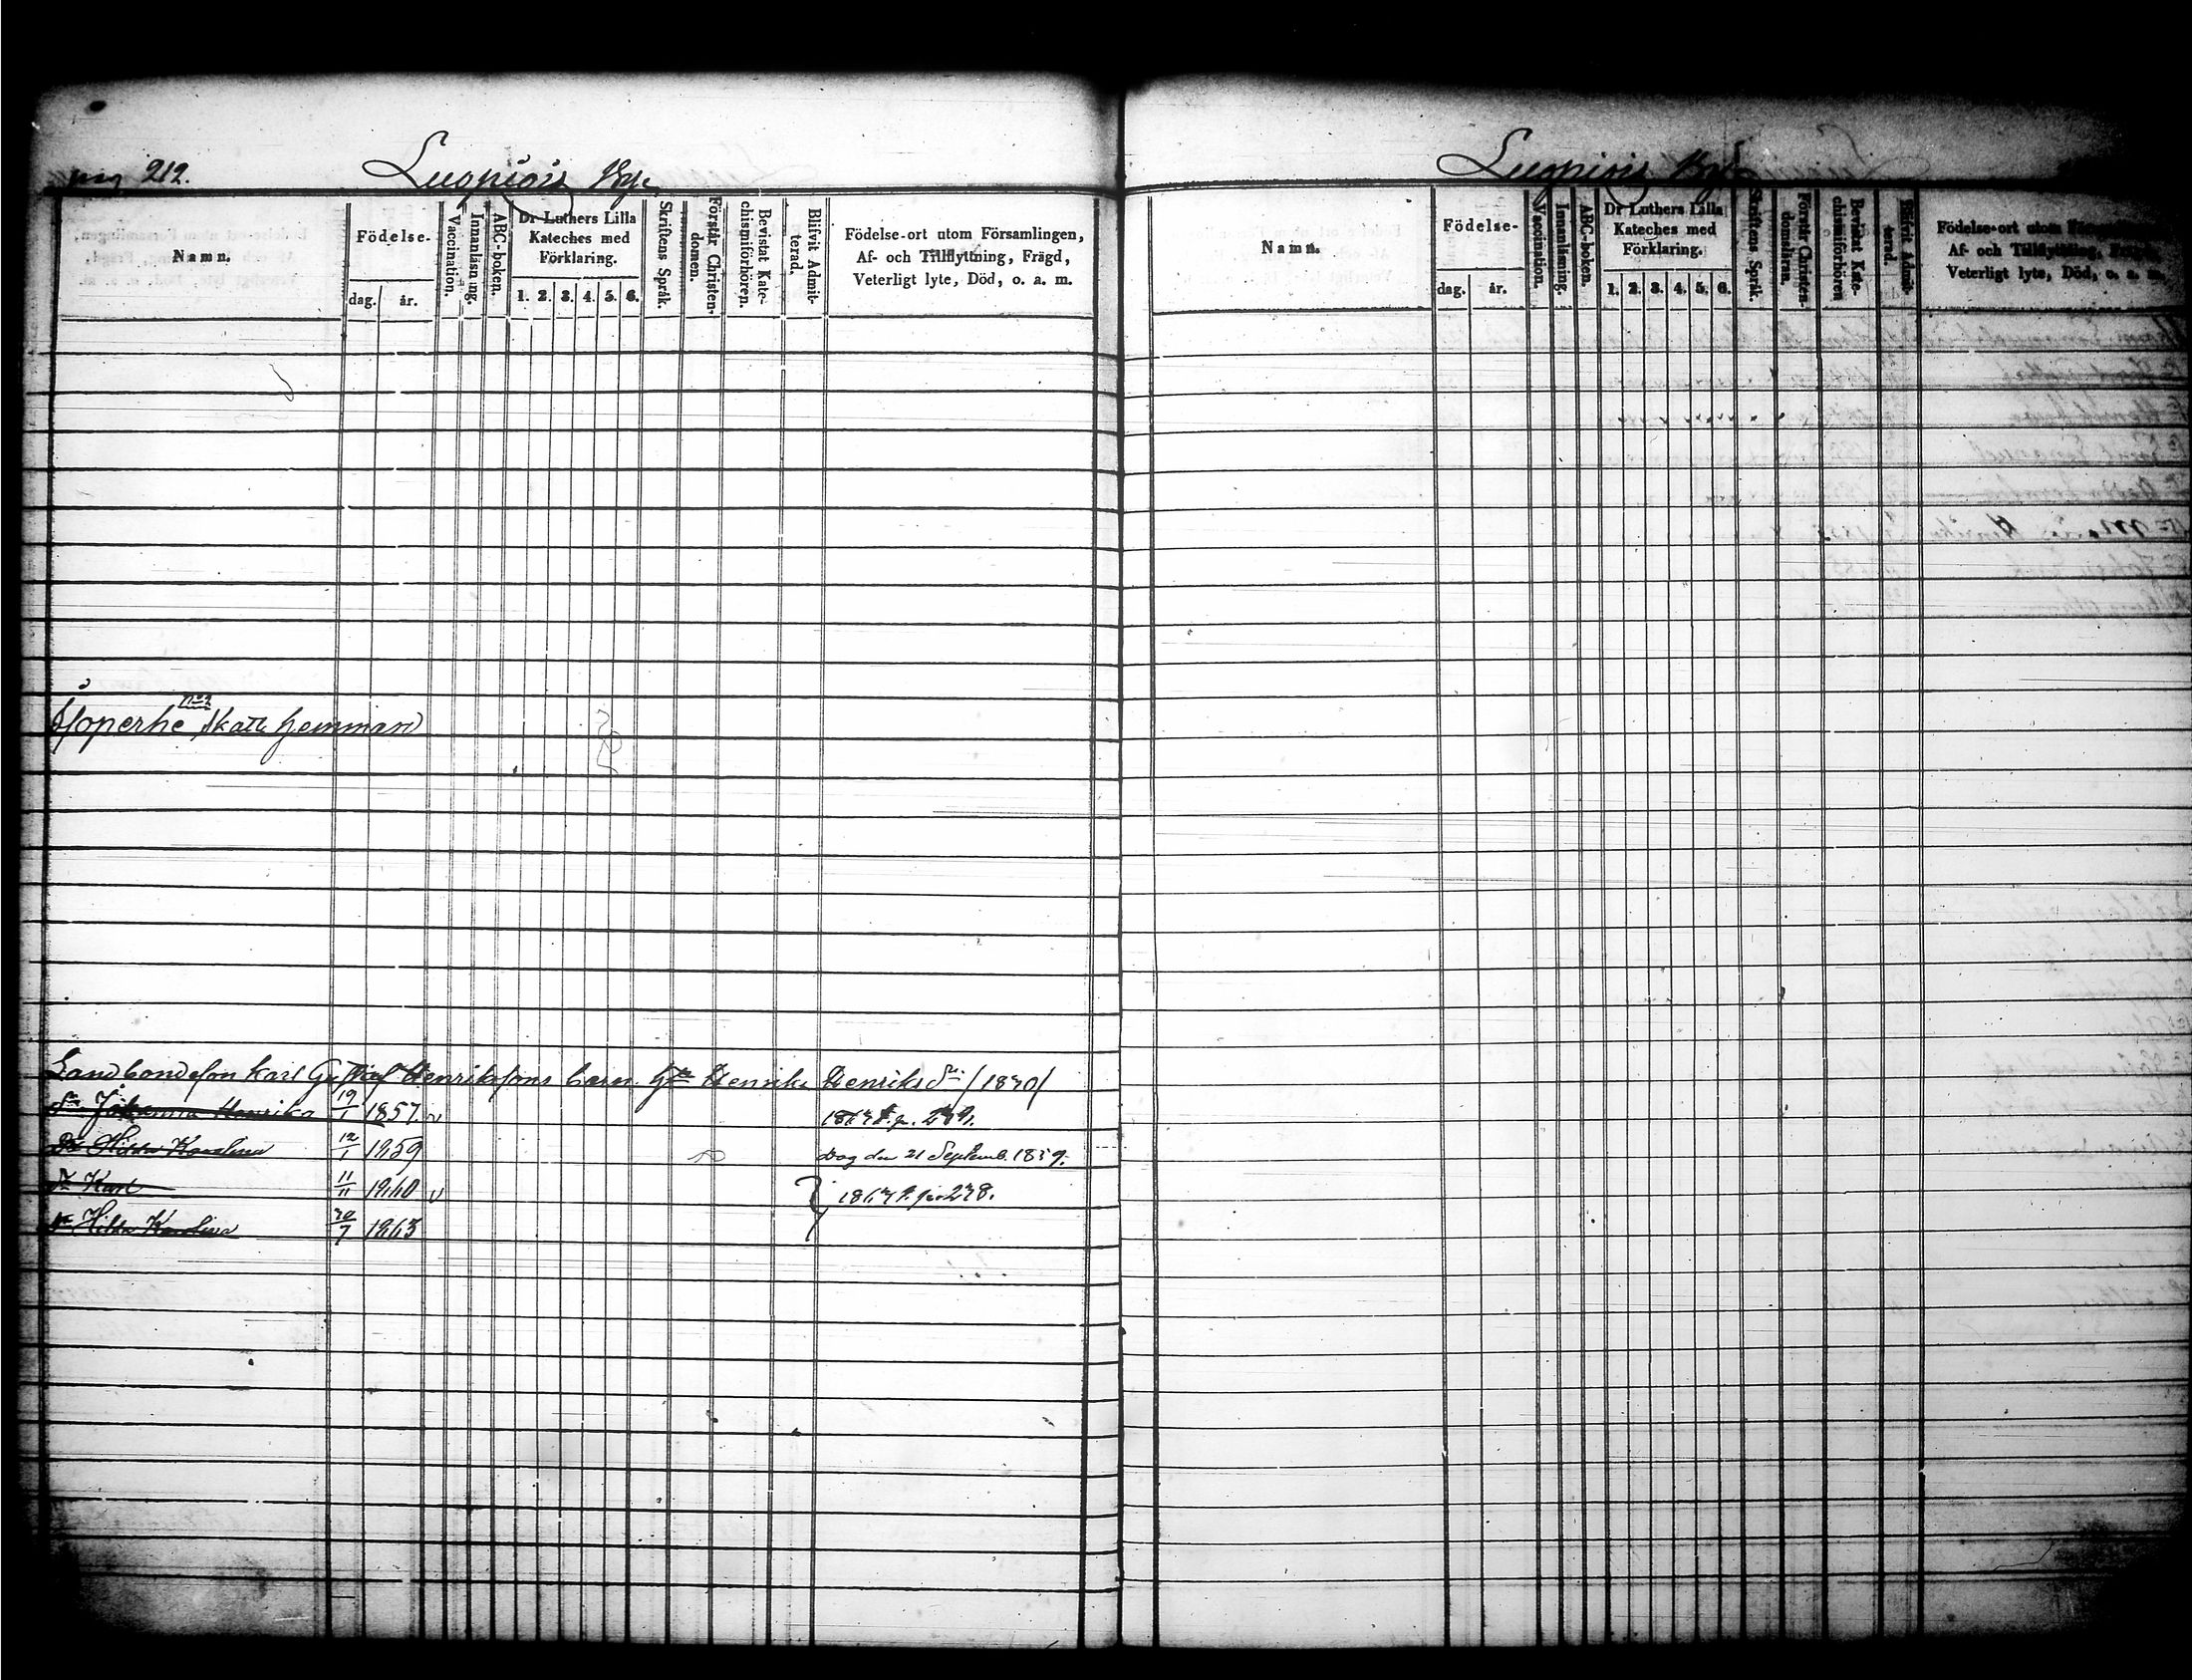 pag 212.
By.
Namn.
Födelse-
dag.
år.
Vaccination.
Innanläsning.
ABC-boken.
Dr Luthers Lilla
Kateches med
Förklaring.
1. 2. 3. 4. 5. 6.
Skriftens Språk.
Förstår Christen-
domen.
Bevistat Kate-
chismiförhören.
Blifvit Admit-
terad.
Födelse-ort utom Församlingen,
Af- och Tillflyttning, Frägd,
Veterligt lyte, Död, o. a. m.
No 2
Isoperhe Skatte hemman
Landbondeson Karl Gustaf Henrikssons barn Henrika Henriksdr /1830/
Dr Johanna Henrika 19/1 1857. v
Dr Hilda Karolina 12/1 1859 Dog den 21 Septemb. 1859.
Sn Karl 11/11 1860 v
Dr Hilda Karolina 30/7 1863
By
Namn.
Födelse-
dag.
år.
Vaccination.
Innanläsning.
ABC-boken.
Dr Luthers Lilla
Kateches med
Förklaring.
1. 2. 3. 4. 5. 6.
Skriftens Språk.
Förstår Christen-
domsläran.
Bevistat Kate-
chismiförhören
Blifvit Admit-
terad.
Födelse-ort utom
Af- och Tillflyttning,
Veterligt lyte, Död, o. a. m.